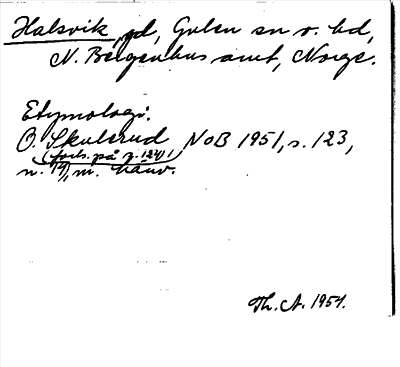 Halsvik, gd, Gulen sn o. hd,
N. Bergenhus amt, Norge.
Etymologi:
O. Skulerud NoB 1951, s. 123,
(forts. på s. 124)
n. 19, m. hänv.
Th. A. 1951.